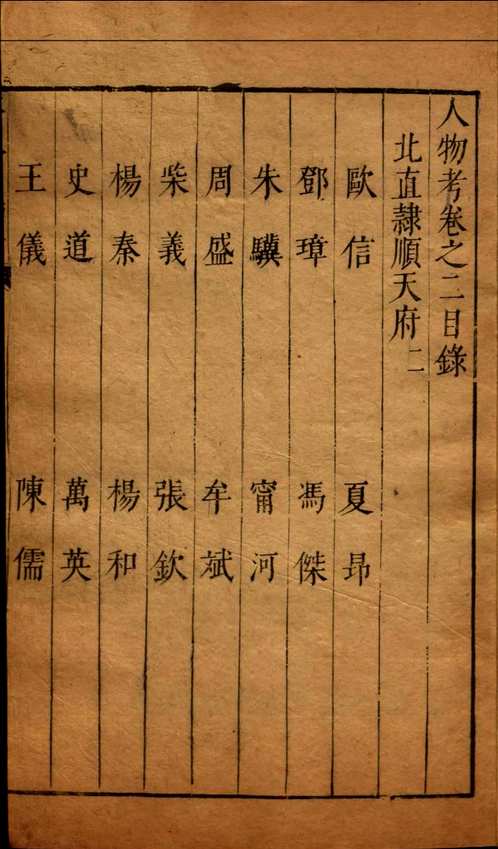 人物考卷之二目錄
北直隸順天府二
歐信 夏昻
鄧璋 馮傑
朱驥 甯河
周盛 牟斌
柴義 張欽
楊秦 楊和
史道 萬英
王儀 陳儒